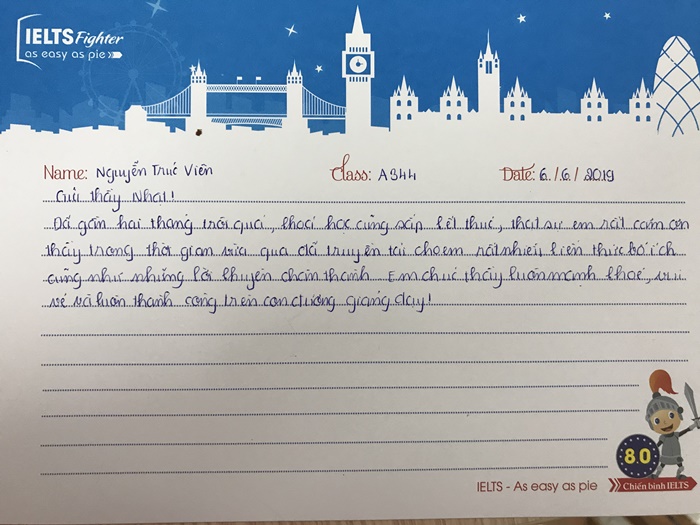 IELTS Fighter
as easy as pie
Name: Nguyễn Trúc Viên Class: A344 Date: 6/6/2019
Gửi thầy Nhật!
Đã gần hai tháng trôi qua, khoá học cũng sắp kết thúc, thật sự em rất cảm ơn
thầy trong thời gian vừa qua đã truyền tải cho em rất nhiều kiến thức bổ ích
cũng như những lời khuyên chân thành. Em chúc thầy luôn mạnh khoẻ, vui
vẻ và luôn thành công trên con đường giảng dạy!
8.0
IELTS - As easy as pie
Chiến binh IELTS